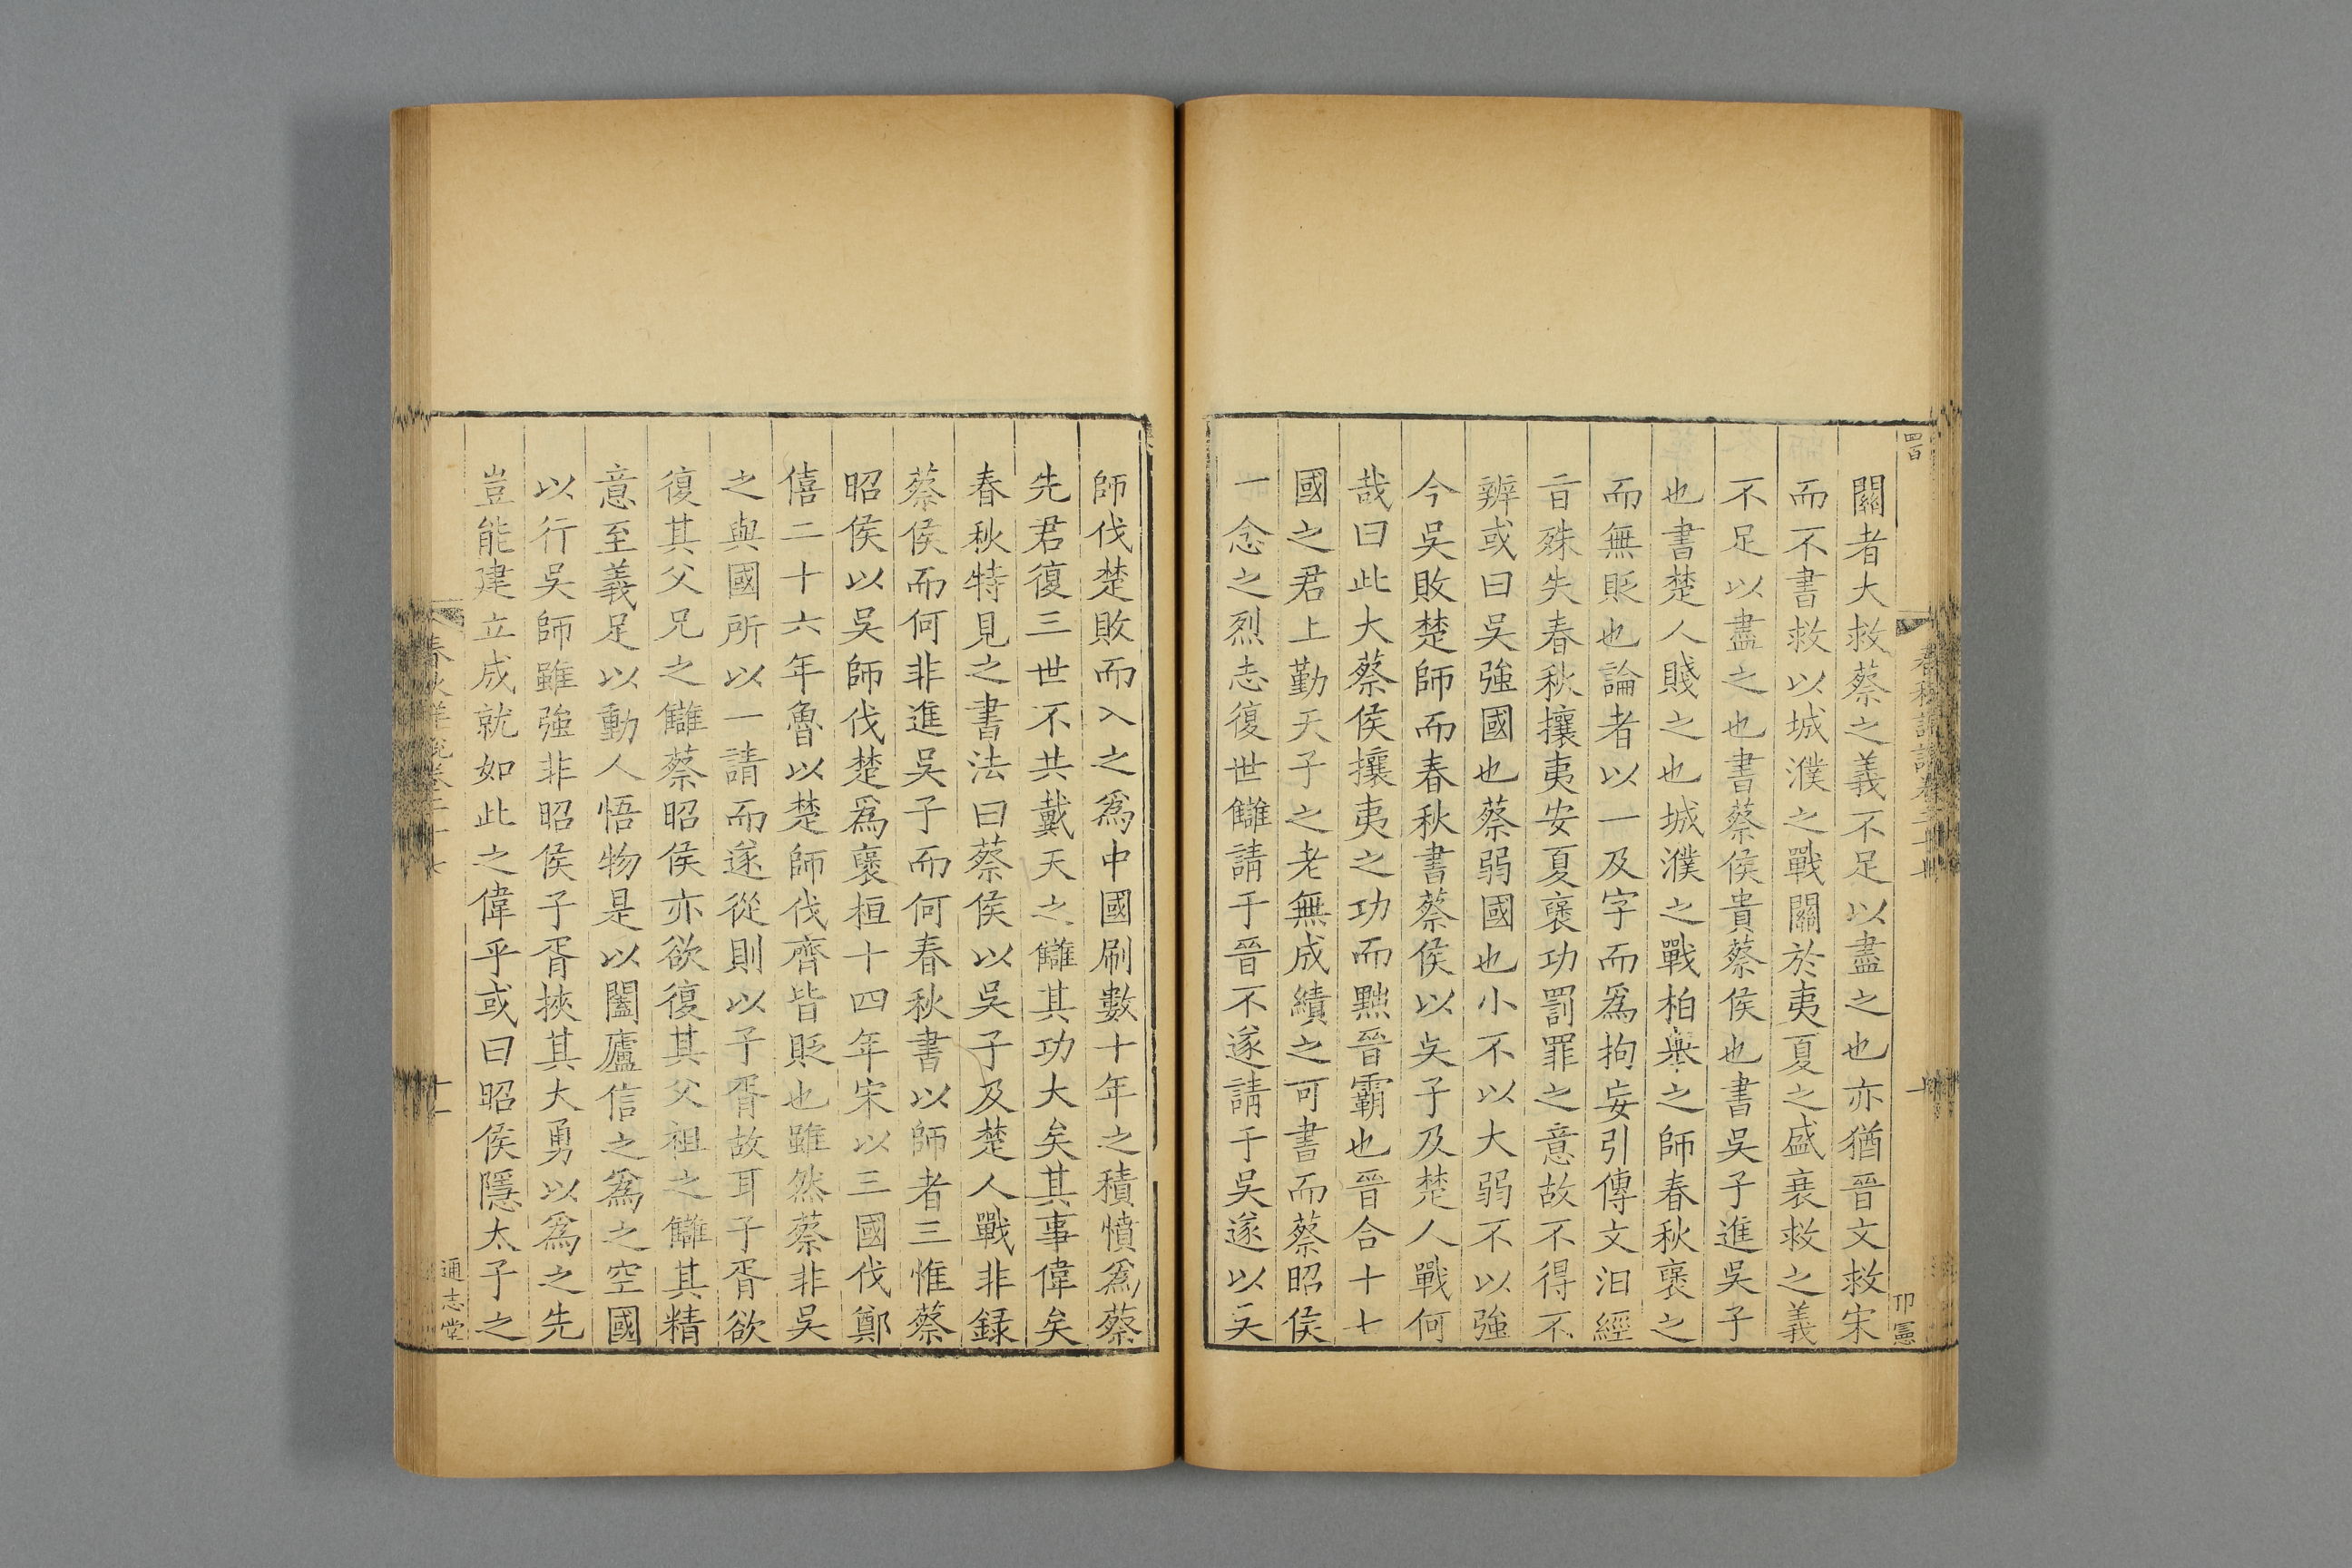 四百
春秋詳說卷二十七
卭憲
關者大救蔡之義不足以盡之也亦猶晉文救宋
而不書救以城濮之戰關於夷夏之盛衰救之義
不足以盡之也書蔡侯貴蔡侯也書吳子進吳子
也書楚人賤之也城濮之戰柏舉之師春秋襃之
而無貶也論者以一及字而爲拘妄引傳文汩經
旨殊失春秋攘夷安夏襃功罰罪之意故不得不
辨或曰吳強國也蔡弱國也小不以大弱不以強
今吳敗楚師而春秋書蔡侯以吳子及楚人戰何
哉曰此大蔡侯攘夷之功而黜晉霸也晉合十七
國之君上勤天子之老無成績之可書而蔡昭侯
一念之烈志復世讎請于晉不遂請于吳遂以吳
師伐楚敗而入之爲中國刷數十年之積憤爲蔡
先君復三世不共戴天之讎其功大矣其事偉矣
春秋特見之書法曰蔡侯以吳子及楚人戰非録
蔡侯而何非進吳子而何春秋書以師者三惟蔡
昭侯以吳師伐楚爲襃桓十四年宋以三國伐鄭
僖二十六年魯以楚師伐齊皆貶也雖然蔡非吳
之與國所以一請而遂從則以子胥故耳子胥欲
復其父兄之讎蔡昭侯亦欲復其父祖之讎其精
意至義足以動人悟物是以闔廬信之爲之空國
以行吳師雖強非昭侯子胥挾其大勇以爲之先
豈能建立成就如此之偉乎或曰昭侯隱太子之
春秋詳說卷二十七
十一
通志堂